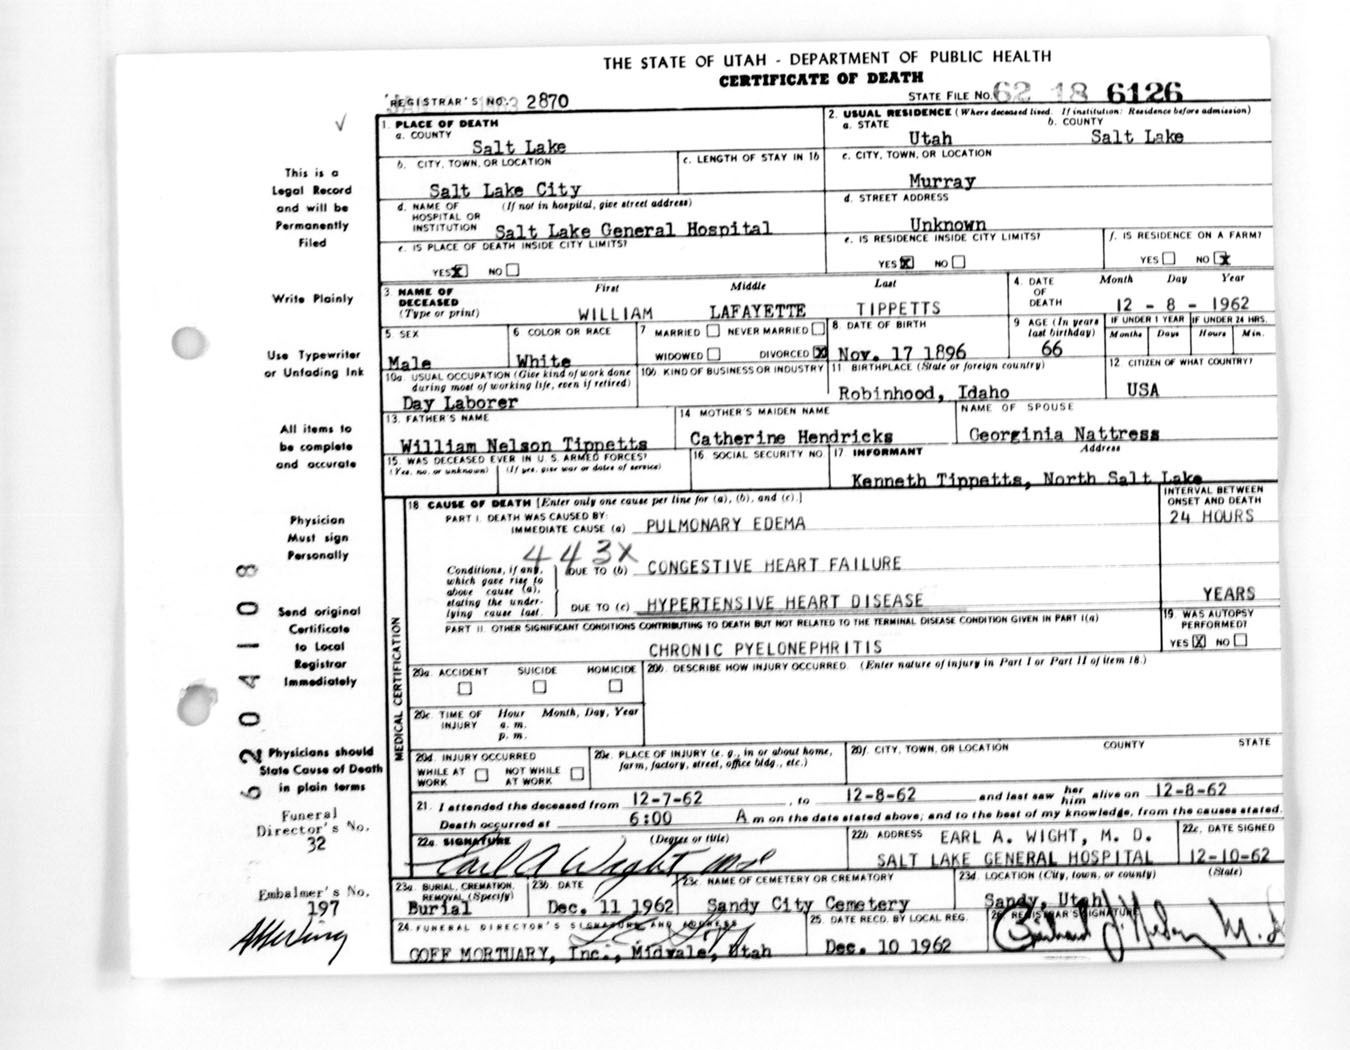 THE STATE OF UTAH - DEPARTMENT OF PUBLIC HEALTH
CERTIFICATE OF DEATH
REGISTRAR'S NO. 2870
STATE FILE NO. 62 18 6126
This is a Legal Record and will be Permanently Filed
Write Plainly
Use Typewriter or Unfading Ink
All items to be complete and accurate
Physician Must sign Personally
Send original Certificate to Local Registrar Immediately
Physicians should State Cause of Death in plain terms
Funeral Director's No. 32
Embalmer's No. 197
62 04108
1. PLACE OF DEATH
a. COUNTY
Salt Lake
2. USUAL RESIDENCE (Where deceased lived. If institution: Residence before admission)
a. STATE b. COUNTY
Utah Salt Lake
b. CITY, TOWN, OR LOCATION
Salt Lake City
c. LENGTH OF STAY IN 1b
c. CITY, TOWN, OR LOCATION
Murray
d. NAME OF HOSPITAL OR INSTITUTION (If not in hospital, give street address)
Salt Lake General Hospital
d. STREET ADDRESS
Unknown
e. IS PLACE OF DEATH INSIDE CITY LIMITS?
YES X NO
e. IS RESIDENCE INSIDE CITY LIMITS?
YES X NO
f. IS RESIDENCE ON A FARM?
YES NO X
3. NAME OF DECEASED (Type or print)
First Middle Last
WILLIAM LAFAYETTE TIPPETTS
4. DATE OF DEATH Month Day Year
12 - 8 - 1962
5. SEX
Male
6 COLOR OR RACE
White
7 MARRIED NEVER MARRIED
WIDOWED DIVORCED X
8. DATE OF BIRTH
Nov. 17 1896
9 AGE (In years last birthday)
66
IF UNDER 1 YEAR
Months Days
IF UNDER 24 HRS.
Hours Min.
10a. USUAL OCCUPATION (Give kind of work done during most of working life, even if retired)
Day Laborer
10b. KIND OF BUSINESS OR INDUSTRY
11. BIRTHPLACE (State or foreign country)
Robinhood, Idaho
12 CITIZEN OF WHAT COUNTRY?
USA
13. FATHER'S NAME
William Nelson Tippetts
14 MOTHER'S MAIDEN NAME
Catherine Hendricks
NAME OF SPOUSE
Georginia Nattress
15. WAS DECEASED EVER IN U. S. ARMED FORCES?
(Yes, no, or unknown) (If yes, give war or dates of service)
16 SOCIAL SECURITY NO.
17 INFORMANT Address
Kenneth Tippetts, North Salt Lake
MEDICAL CERTIFICATION
18. CAUSE OF DEATH [Enter only one cause per line for (a), (b), and (c).]
INTERVAL BETWEEN ONSET AND DEATH
PART I. DEATH WAS CAUSED BY:
IMMEDIATE CAUSE (a) PULMONARY EDEMA
24 HOURS
443X
Conditions, if any, which gave rise to above cause (a), stating the underlying cause last.
DUE TO (b) CONGESTIVE HEART FAILURE
DUE TO (c) HYPERTENSIVE HEART DISEASE
YEARS
PART II. OTHER SIGNIFICANT CONDITIONS CONTRIBUTING TO DEATH BUT NOT RELATED TO THE TERMINAL DISEASE CONDITION GIVEN IN PART I(a)
CHRONIC PYELONEPHRITIS
19. WAS AUTOPSY PERFORMED?
YES X NO
20a. ACCIDENT SUICIDE HOMICIDE
20b. DESCRIBE HOW INJURY OCCURRED. (Enter nature of injury in Part I or Part II of item 18.)
20c. TIME OF INJURY Hour Month, Day, Year
a. m.
p. m.
20d. INJURY OCCURRED
WHILE AT WORK NOT WHILE AT WORK
20e. PLACE OF INJURY (e. g., in or about home, farm, factory, street, office bldg., etc.)
20f. CITY, TOWN, OR LOCATION COUNTY STATE
21. I attended the deceased from 12-7-62, to 12-8-62 and last saw her him alive on 12-8-62
Death occurred at 6:00 A m on the date stated above; and to the best of my knowledge, from the causes stated.
22a. SIGNATURE (Degree or title)
Earl A Wight MD
22b. ADDRESS EARL A. WIGHT, M. D.
SALT LAKE GENERAL HOSPITAL
22c. DATE SIGNED
12-10-62
23a. BURIAL, CREMATION, REMOVAL (Specify)
Burial
23b. DATE
Dec. 11 1962
23c. NAME OF CEMETERY OR CREMATORY
Sandy City Cemetery
23d. LOCATION (City, town, or county) (State)
Sandy, Utah
24. FUNERAL DIRECTOR'S SIGNATURE AND ADDRESS
GOFF MORTUARY, Inc., Midvale, Utah
25. DATE RECD. BY LOCAL REG.
Dec. 10 1962
26 REGISTRAR'S SIGNATURE